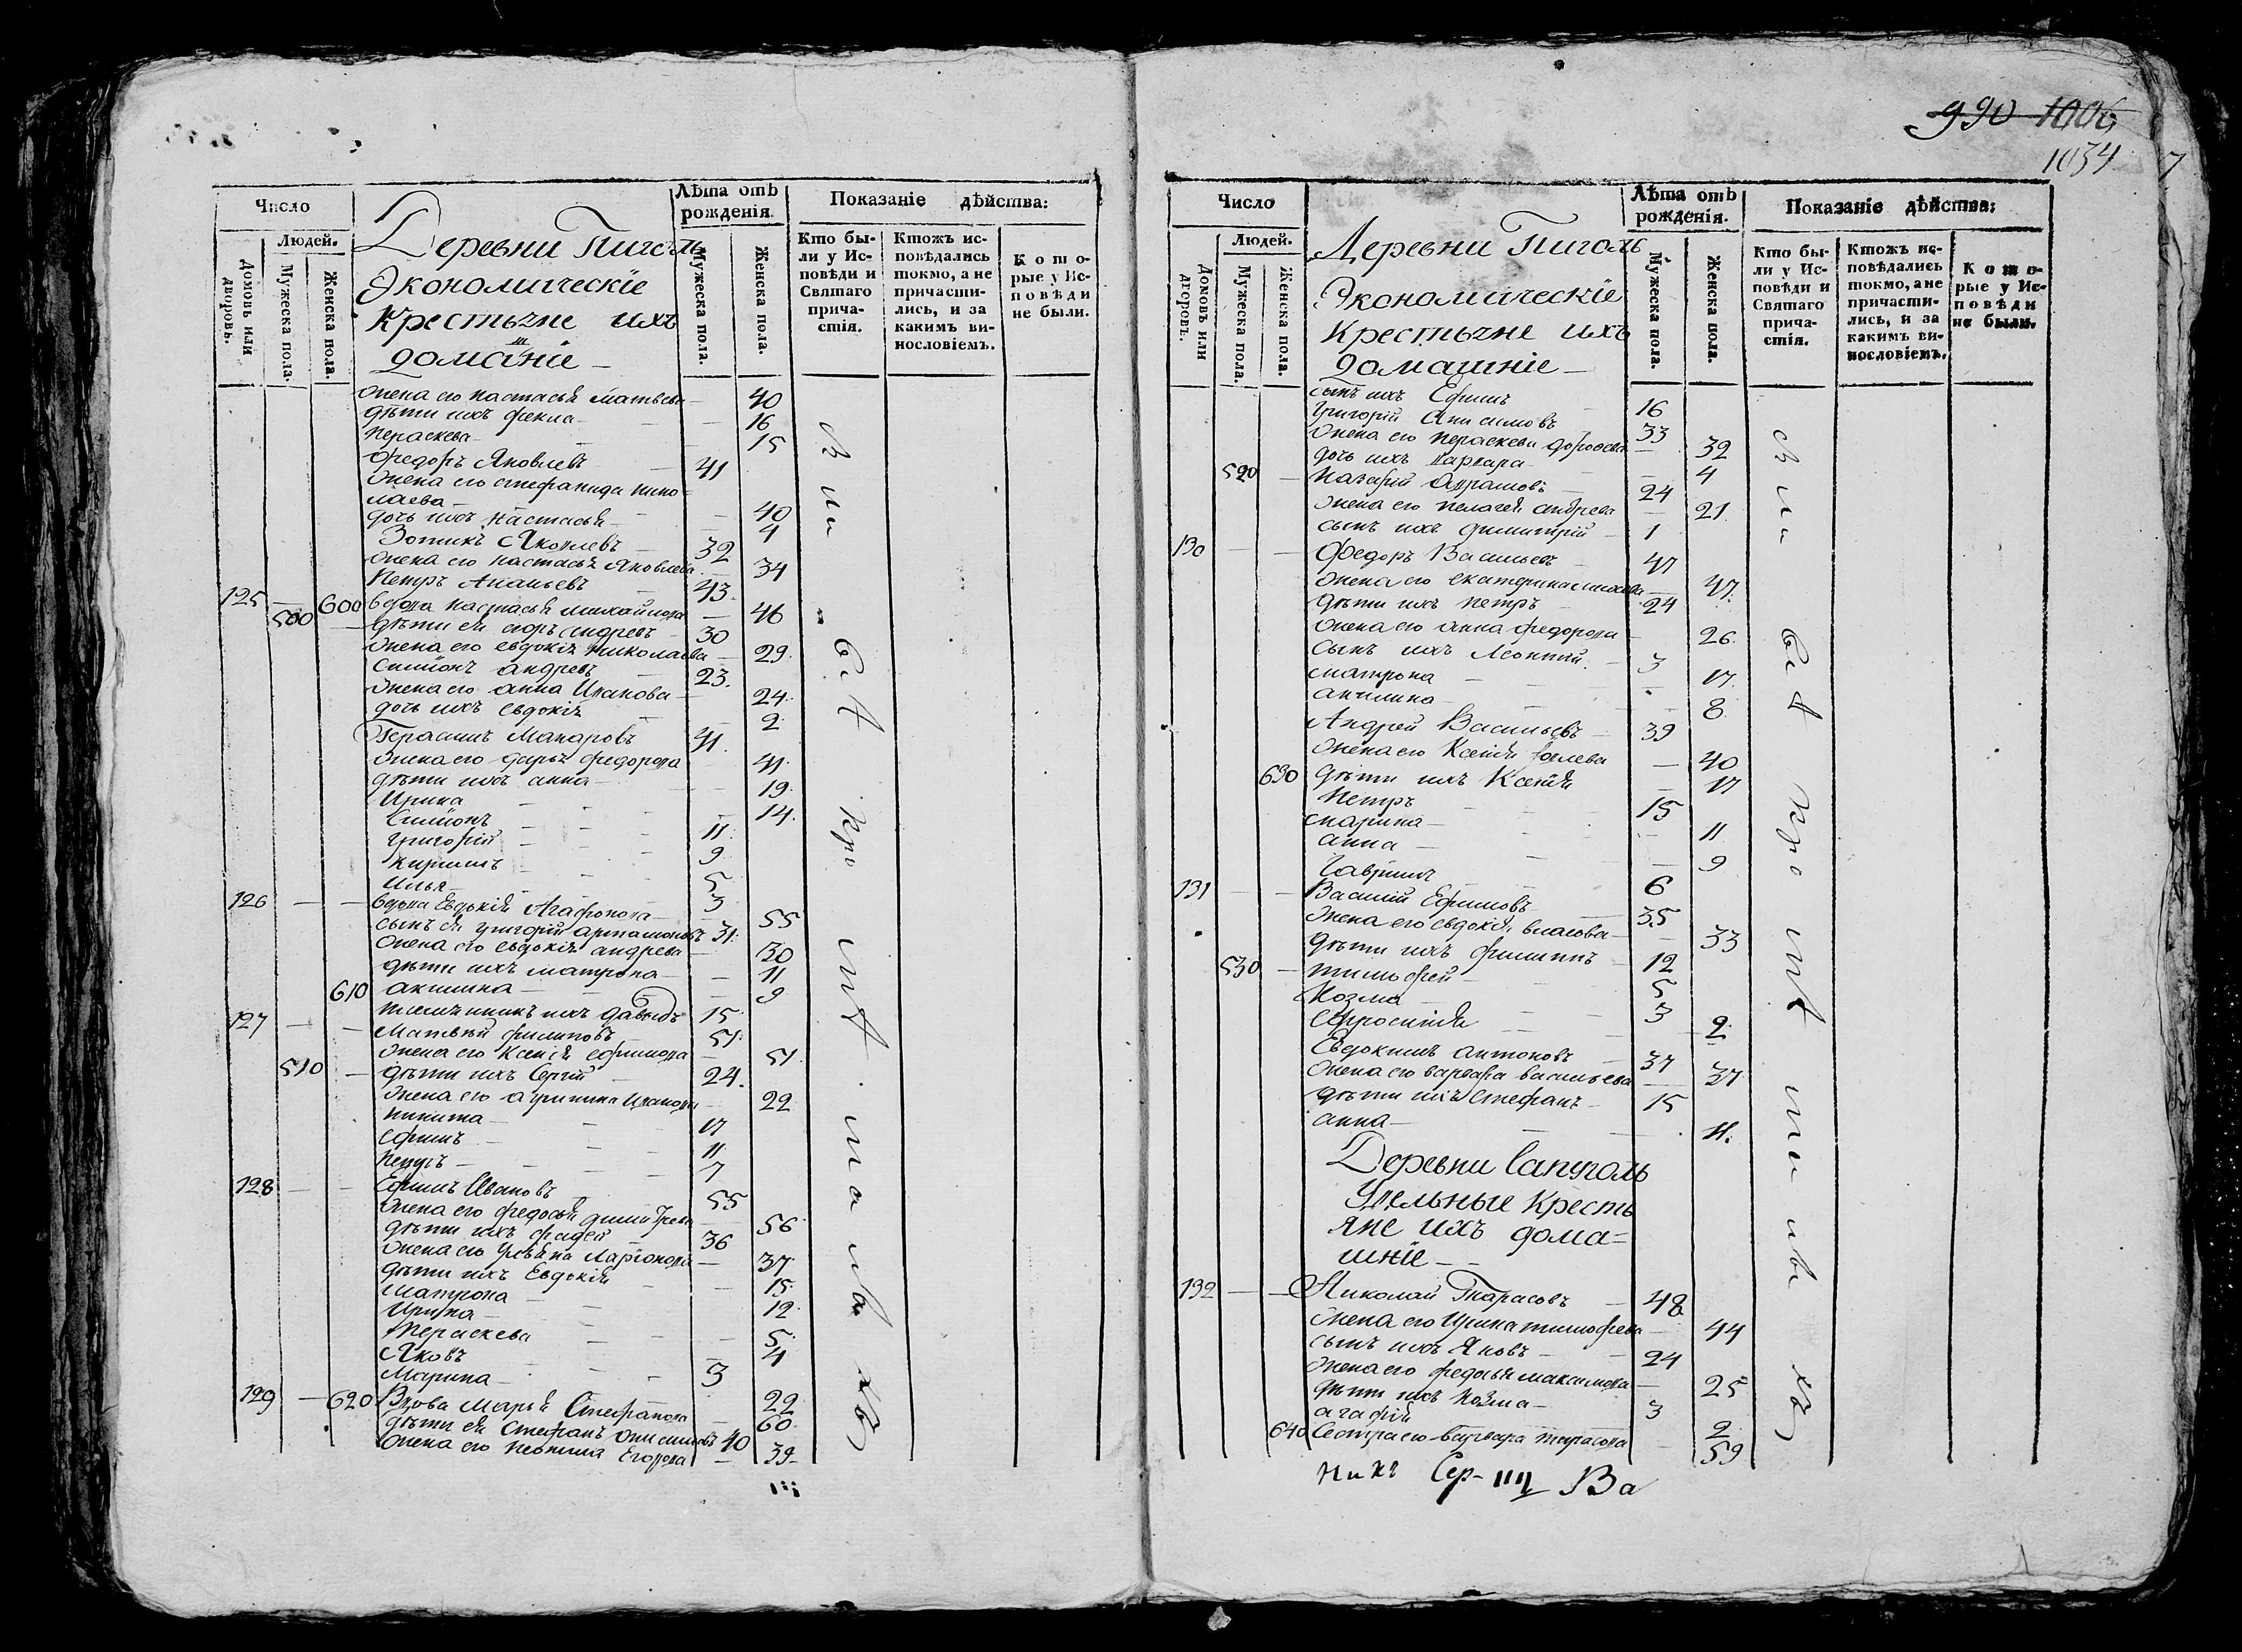 Число
Людей.
Домовъ или дворовъ.
Мужеска пола.
Женска пола.
Деревни Пиголь
Экономическіе
крестьяне ихъ
домашніе
Лѣта отъ рожденія.
Мужеска пола.
Женска пола.
Показаніе дѣйства:
Кто бы-
ли у Ис-
повѣди и
Святаго
прича-
стія.
Ктожъ ис-
повѣдались
токмо, а не
причасти-
лись, и за
какимъ ви-
нословіемъ.
Кото-
рые у Ис-
повѣди
не были.
жена его настасья матвѣева 40
дѣти ихъ фекла 16
пераскева 15
Федоръ Яковлевъ 41
жена его стефанида нико-
лаева 40
дочь ихъ настасья 4
Зотикъ Яковлевъ 32
жена его настасья Яковлева 34
Петръ Ананьевъ 43
125 500 600 вдова настасья михайлова 46
дѣти ея егоръ андревъ 30
жена его евдокія николаева 29
Симионъ андревъ 23
жена его анна Иванова 24
дочь ихъ евдокія 2
Герасимъ Макаровъ 41
жена его дарья федорова 41
дѣти ихъ анна 19
Ирина 14
Симионъ 11
григорій 9
5
илья 3
126 вдова Евдокія Агафонова 55
сынъ ея григорій артамоновъ 31
жена его евдокія андрева 30
дѣти ихъ матрона 11
610 акилина 9
ихъ давыдъ 15
127 Матвѣй филиповъ 51
жена его Ксенія ефимова 51
510 дѣти ихъ Сергій 24
жена его агрипина Иванова 22
никита 17
ефимъ 11
петръ 7
128 Ефимъ Ивановъ 55
жена его федосья димитрева 56
дѣти ихъ фадей 36
жена его Ульяна Ларіонова 37
дѣти ихъ Евдокія 15
Матрона 12
Ирина 5
Пераскева 4
Яковъ 3
Марина 22
129 620 Вдова Марья Стефанова 60
дѣти ея Стефанъ онисимовъ 40
жена его неонила Егорова 39
990 1006
1034
7
Число
Людей.
Домовъ или дворовъ.
Мужеска пола.
Женска пола.
Деревни Пиголь
Экономическіе
крестьяне ихъ
домашніе
Лѣта отъ рожденія.
Мужеска пола.
Женска пола.
Показаніе дѣйства:
Кто бы-
ли у Ис-
повѣди и
Святаго
прича-
стія.
Ктожъ ис-
повѣдались
токмо, а не
причасти-
лись, и за
какимъ ви-
нословіемъ.
Кото-
рые у Ис-
повѣди
не были.
сынъ ихъ Ефимъ 16
Григорій Анисимовъ 33
жена его пераскева дорофева 32
дочь ихъ варвара 4
520 Назарій Авраамовъ 24
жена его пелагея андрева 21
сынъ ихъ димитрій 1
130 Федоръ Васильевъ 47
жена его екатерина 47
дѣти ихъ петръ 24
жена его анна федорова 26
сынъ ихъ Леонтій 3
матрона 17
акилина 8
Андрей Васильевъ 39
жена его Ксенія 40
630 дѣти ихъ Ксенія 17
Петръ 15
марина 11
анна 9
Гавріилъ 6
131 Василій Ефимовъ 35
жена его евдокія власова 33
дѣти ихъ филиппъ 12
530 тимофей 5
Козма 3
Ефросинія 2
Евдокимъ антоновъ 37
жена его варвара васильева 37
дѣти ихъ Стефанъ 15
анна 11
Деревни Сапуголь
Удельные кресть
яне ихъ дома=
шніе
132 Николай Тарасовъ 48
жена его Ирина тимофева 44
сынъ ихъ Яковъ 24
жена его федосья максимова 25
дѣти ихъ козма 3
агафія 2
640 Сестра его варвара тарасова 59